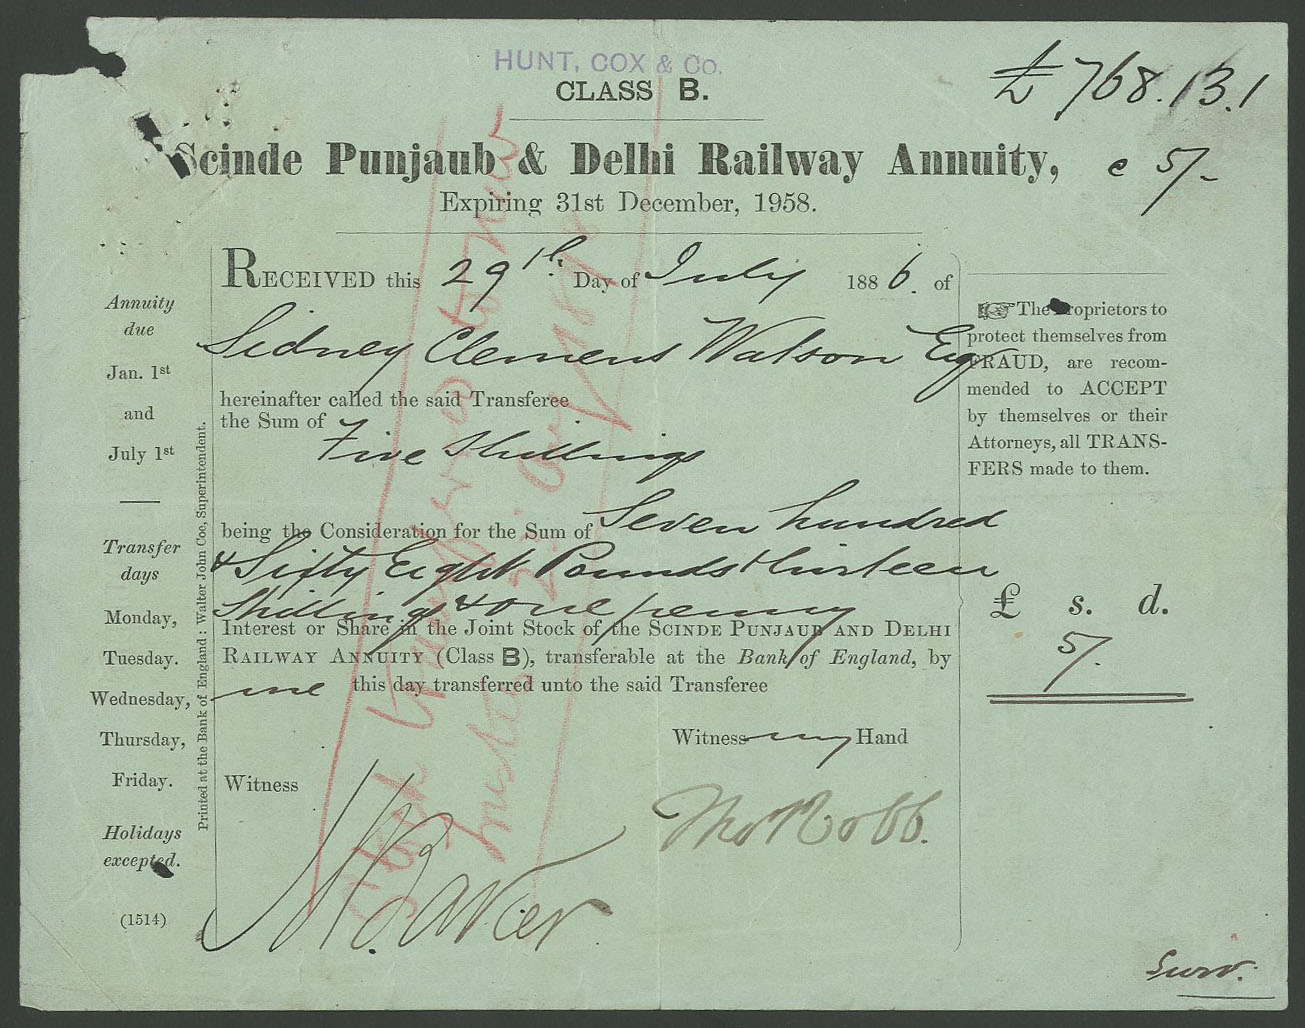 HUNT, COX & Co.
CLASS B.
£768.13.1
Scinde Punjaub & Delhi Railway Annuity,
@ 5/-
Expiring 31st December, 1958.
RECEIVED this 29th Day of July 1886. of
Sidney Clemens Watson Esq
hereinafter called the said Transferee
the Sum of Five Shillings
being the Consideration for the Sum of Seven hundred
& Sixty Eight Pounds thirteen
Shillings & one penny
Interest or Share in the Joint Stock of the SCINDE PUNJAUB AND DELHI
RAILWAY ANNUITY (Class B), transferable at the Bank of England, by
me this day transferred unto the said Transferee
Witness my Hand
Witness
Baker
Thos Robb.
Annuity
due
Jan. 1st
and
July 1st
Transfer
days
Monday,
Tuesday.
Wednesday,
Thursday,
Friday.
Holidays
excepted.
(1514)
Printed at the Bank of England: Walter John Coe, Superintendent.
The Proprietors to
protect themselves from
FRAUD, are recom-
mended to ACCEPT
by themselves or their
Attorneys, all TRANS-
FERS made to them.
£ s. d.
5/.